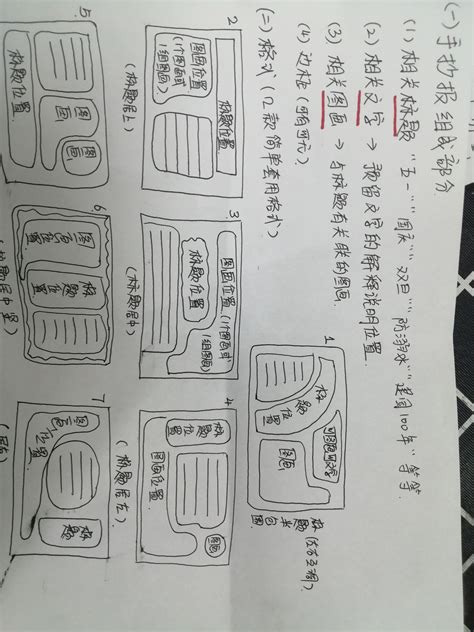 (一) 手抄报组成部分
(1) 相关标题 "五一" "国庆" "双旦" "防溺水" "建国100年" 等等.
(2) 相关文字 → 预留文字的解释说明位置.
(3) 相关图画 → 与标题有关联的图画.
(4) 边框 (可有可无)
(二) 格式 (12款简单套用格式)
1
标题位置
可图画可文字
图画
标题半包围
(左右互调)
2
标题位置.
图画位置
(1个图画或
1组图画)
(标题居上)
3
图画位置.(1个图画或
1组图画)
标题位置
(标题居中)
4
标题位置
图画
图画位置.
(标题居左)
5
标题位置.
图画
图画
6
图画位置
标题位置
7
图画位置
标题